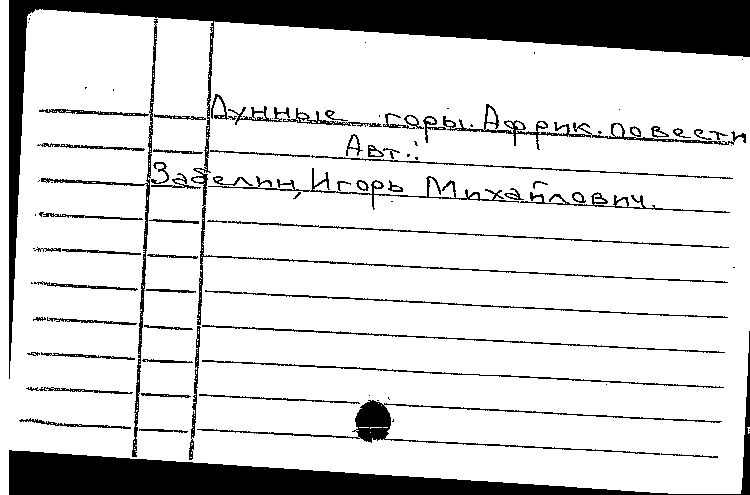 Лунные горы. Африк. повести
Авт.:
Забелин, Игорь Михайлович.